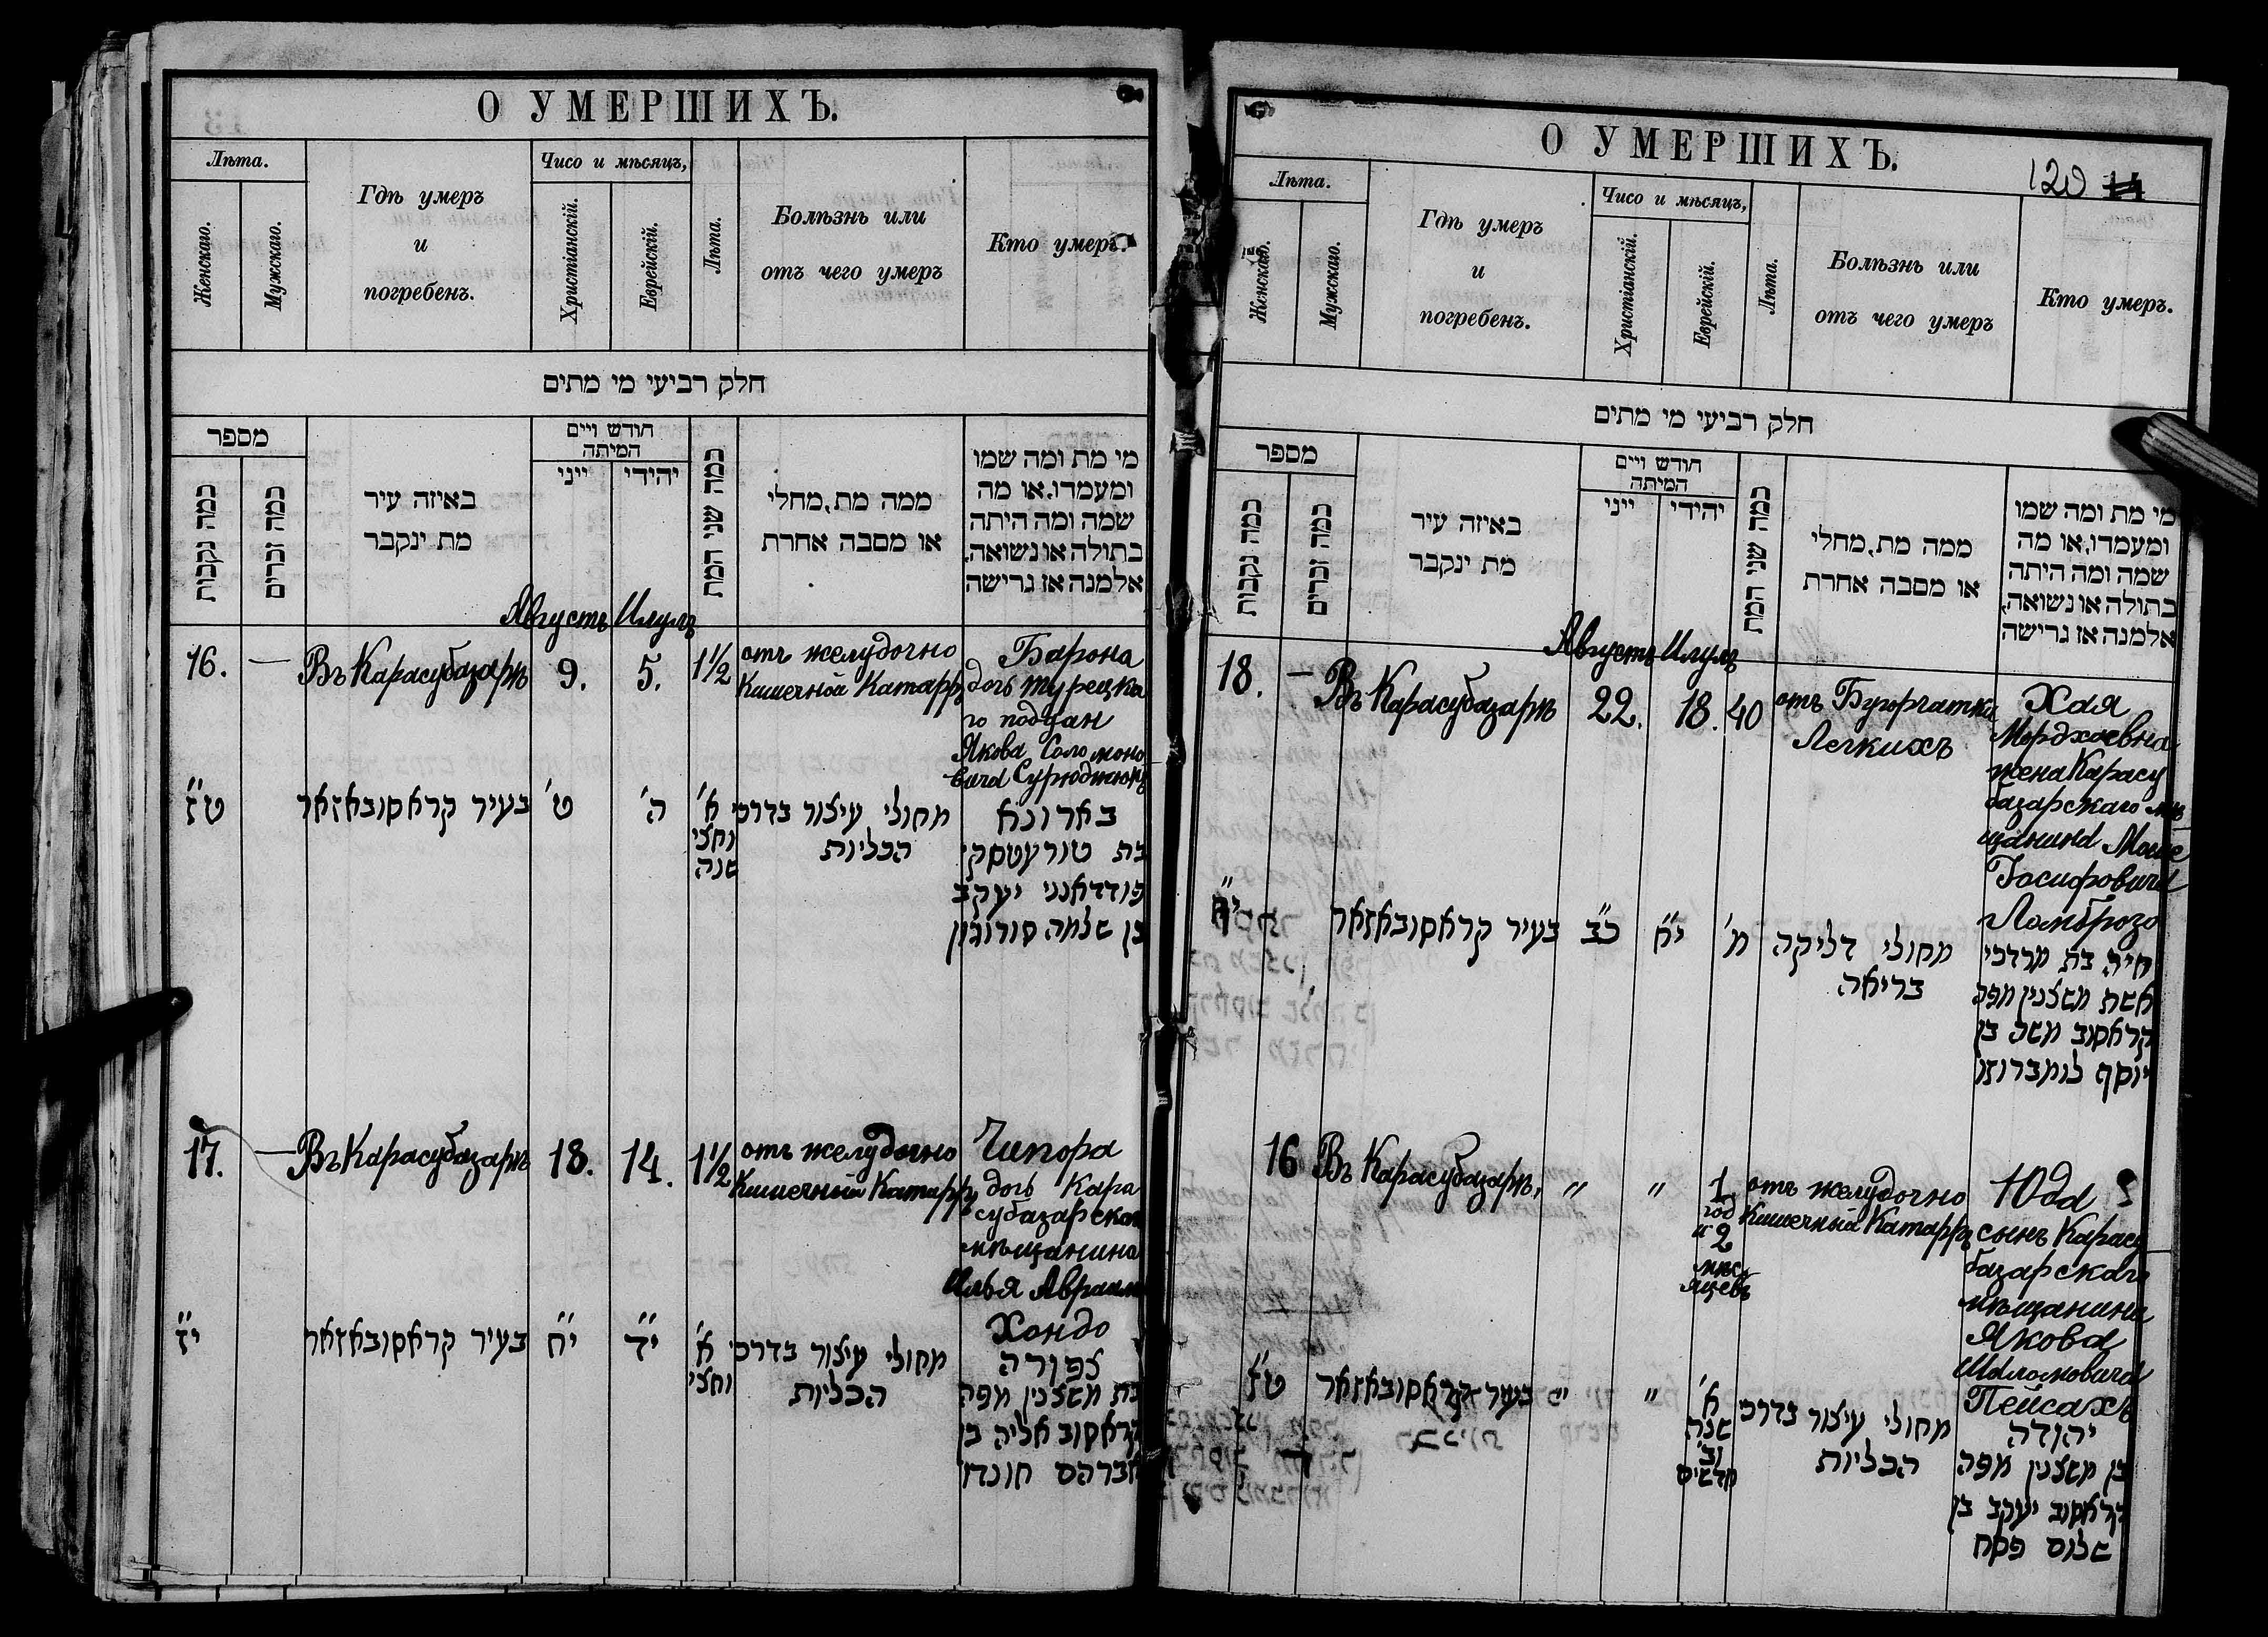 О УМЕРШИХЪ.
Лѣта.
Женскаго.
Мужскаго.
Гдѣ умеръ
и
погребенъ.
Чисо и мѣсяцъ,
Христіанскій.
Еврейскій.
Лѣта.
Болѣзнь или
отъ чего умеръ
Кто умеръ.
חלק רביעי מי מתים
מספר
כמה נקבות
כמה זכרים
באיזה עיר
מת ינקבר
חודש ויים
המיתה
ייני
יהידי
כמה שני המת
ממה מת, מחלי
או מסבה אחרת
מי מת ומה שמו
ומעמדו, או מה
שמה ומה היתה
בתולה או נשואה,
אלמנה אז גרישה
Августъ Илулъ
16. — Въ Карасубазарѣ 9. 5. 1½
отъ желудочно
Кишечной Катарръ
Барона
дочь турецка
го поддан
Якова Соломоно
вича
ט״ז
בעיר קראסובאזאר
ט׳
ה׳
א׳
וחצי
שנה
מחולי עיצור בדרכי
הכליות
בארונא
בת טורעטסקי
פודדאנני יעקב
בן שלמה סורוגון
17. — Въ Карасубазарѣ 18. 14. 1½
отъ желудочно
Кишечный Катарръ
Чипора
дочь Кара
субазарскаго
мѣщанина
Илья Авраам
Хондо
י״ז
בעיר קראסובאזאר
י״ח
י״ד
א׳
וחצי
מחולי עיצור בדרכי
הכליות
צפורה
בת משצנין מפה
קראסוב אליה בן
אברהם חונדו
О УМЕРШИХЪ.
120 14
Лѣта.
Женскаго.
Мужскаго.
Гдѣ умеръ
и
погребенъ.
Чисо и мѣсяцъ,
Христіанскій.
Еврейскій.
Лѣта.
Болѣзнь или
отъ чего умеръ
Кто умеръ.
חלק רביעי מי מתים
מספר
כמה נקבות
כמה זכרים
באיזה עיר
מת ינקבר
חודש ויים
המיתה
ייני
יהידי
כמה שני המת
ממה מת, מחלי
או מסבה אחרת
מי מת ומה שמו
ומעמדו, או מה
שמה ומה היתה
בתולה או נשואה,
אלמנה אז גרישה
Августъ Илулъ
18. — Въ Карасубазарѣ 22. 18. 40
отъ Бугорчатки
Легкихъ
Хая
Мордхаевна
жена Карасу
базарскаго мѣ
щанина Моше
Іосифовича
Ломброзо
י״ח
בעיר קראסובאזאר
כ״ב
י״ח
מ׳
מחולי דליקה
בריאה
חיה בת מרדכי
אשת משצנין מפה
קראסוב משה בן
יוסף לומברוזו
16 Въ Карасубазарѣ, " "
1
год
и 2
мѣс
яцевъ
отъ желудочно
Кишечный Катарръ
Юда
сынъ Карасу
базарскаго
мѣщанина
Якова
Шаломовича
Пейсахъ
ט״ז
בעיר קראסובאזאר
"
"
א׳
שנה
וב׳
חדשים
מחולי עיצור בדרכי
הכליות
יהודה
בן משצנין מפה
קראסוב יעקב בן
שלום פסח